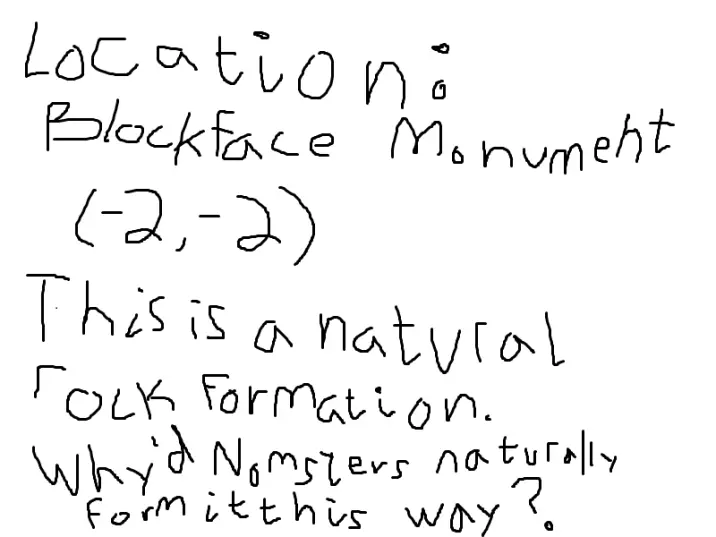 Location:
Blockface Monument
(-2,-2)
This is a natural
rock formation.
Why'd Nomsters naturally
form it this way?.